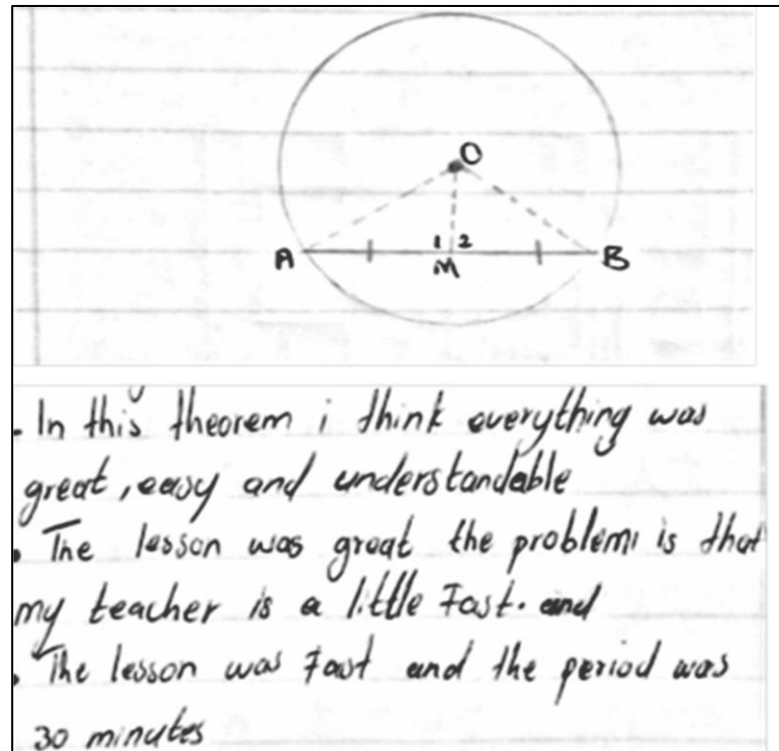 O
1 2
A M B
. In this theorem i think everything was
great, easy and understandable
. The lesson was great the problem is that
my teacher is a little Fast. and
. The lesson was Fast and the period was
30 minutes